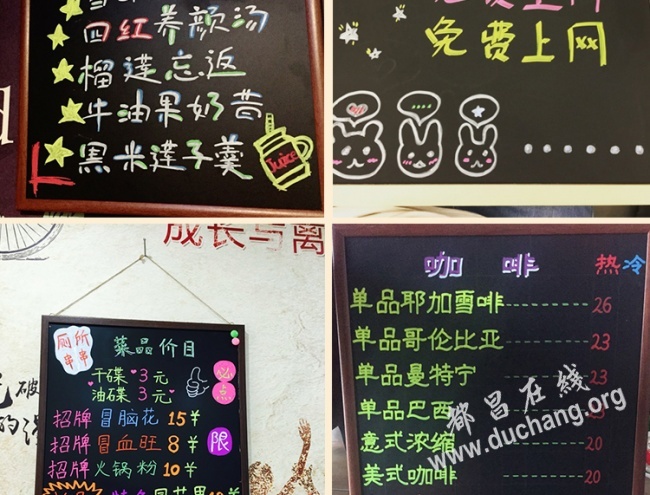 四红养颜汤
榴莲忘返
牛油果奶昔
黑米莲子羹
Juice
免费上网
成长与离
厕所
串串
菜品价目
干碟 3元
油碟 3元
招牌冒脑花 15¥
招牌冒血旺 8¥
招牌火锅粉 10¥
限
咖啡 热 冷
单品耶加雪啡 26
单品哥伦比亚 23
单品曼特宁 23
单品巴西 23
意式浓缩 20
美式咖啡 20
都昌在线
www.duchang.org